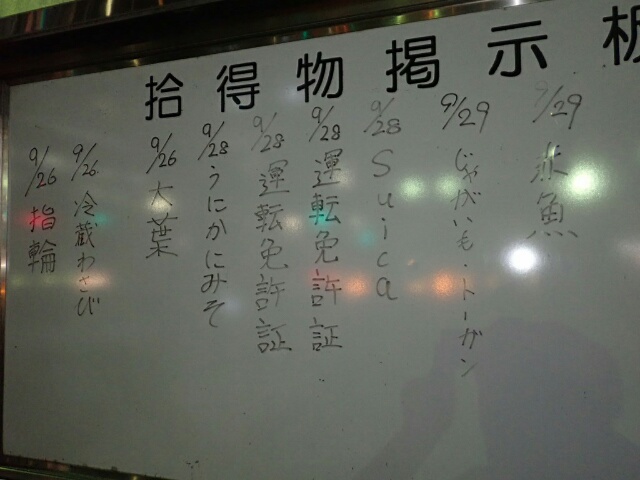 拾得物掲示板
9/29 赤魚
9/29 じゃがいも・トーガン
9/28 Suica
9/28 運転免許証
9/28 運転免許証
9/28 うにかにみそ
9/26 大葉
9/26 冷蔵わさび
9/26 指輪